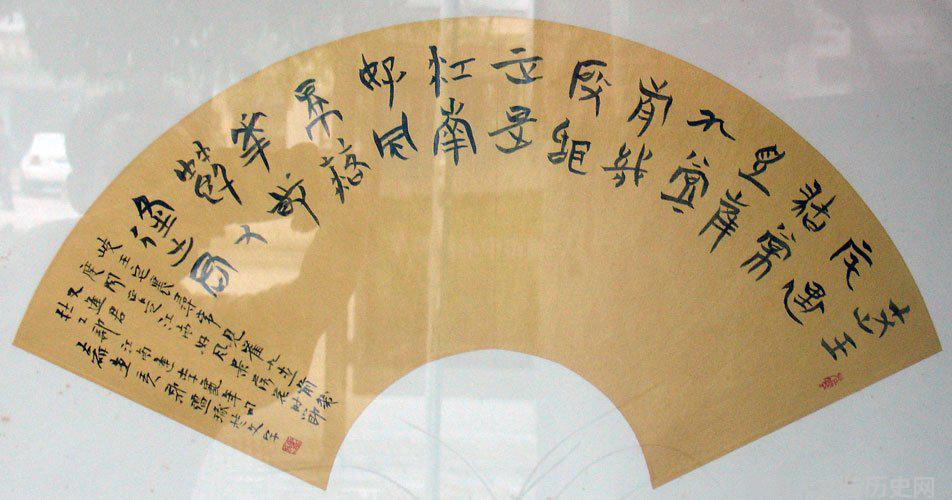 岐王
宅裏
尋常
見崔
九堂
前幾
度聞
正是
江南
好風
景落
花時
節又
逢君
岐王宅裏尋常見崔九堂前幾
度聞正是江南好風景落花時節
又逢君
杜工部江南逢李龜年
历史网